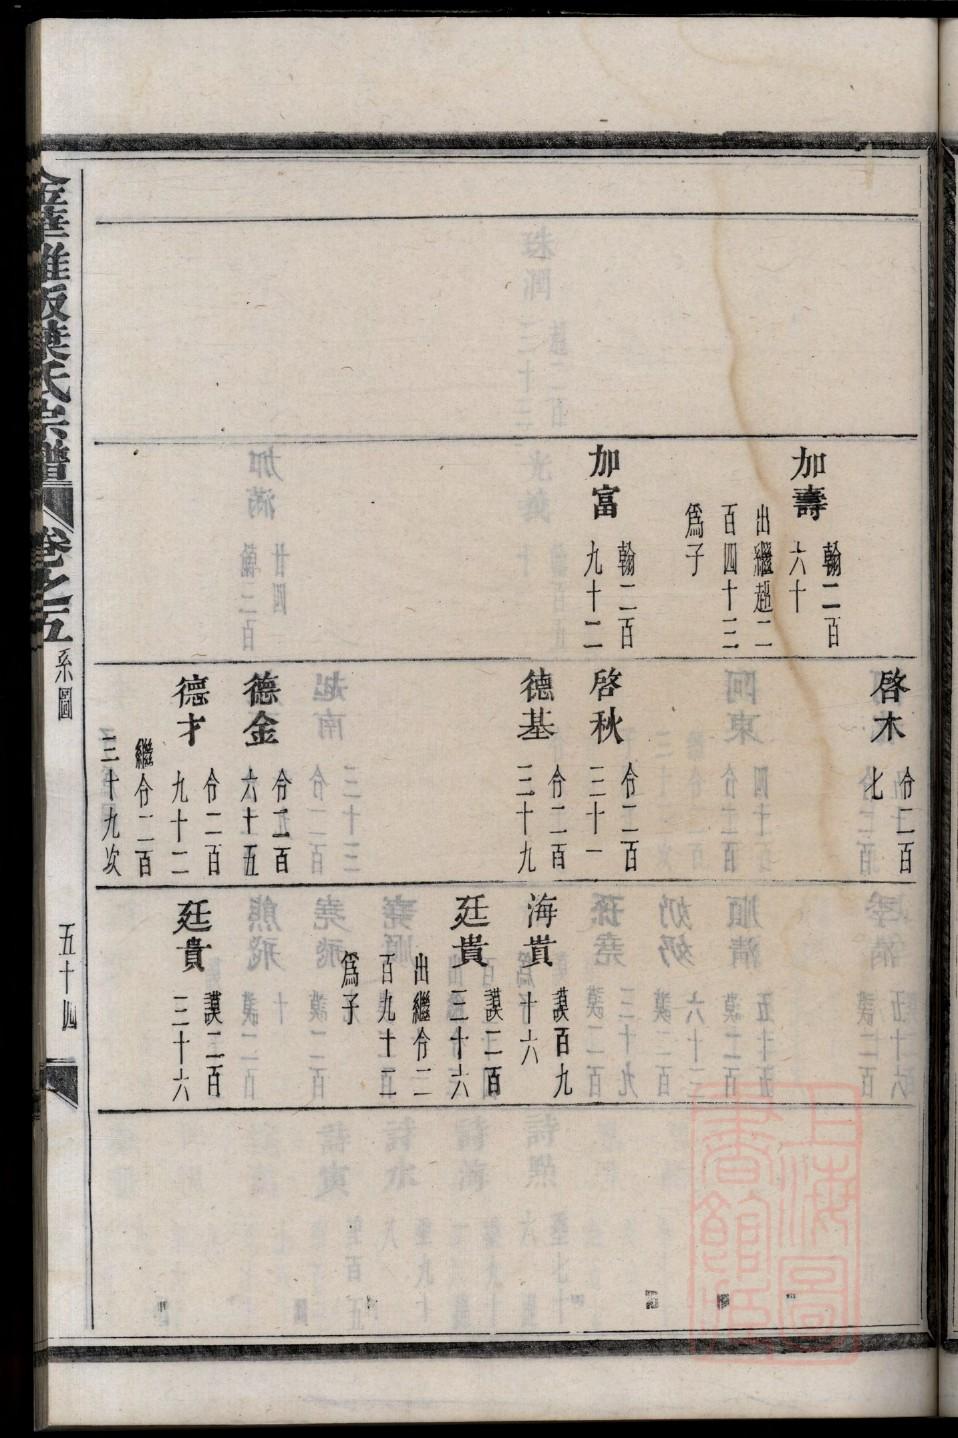 加壽
翰二百
六十
出繼超二
百四十三
爲子
加富
翰二百
九十二
啓木
佾二百
七
啓秋
佾二百
三十一
德基
佾二百
三十九
德金
佾二百
六十五
德才
佾二百
九十二
繼佾二百
三十九次
海貰
謨百九
十六
廷貴
謨二百
三十六
出繼佾二
百九十二
爲子
廷貴
謨二百
三十六
葉氏宗譜
卷之五
系圖
五十四
上海圖
書館藏